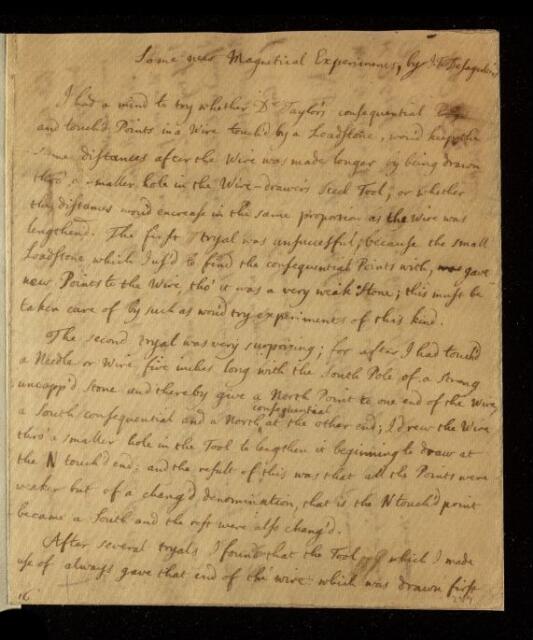 Some new Magnetical Experiments, by J. T. Desaguliers
I had a mind to try whether Dr Taylor's consequential
and touch'd Points in a Wire touch'd by a Loadstone, wou'd keep the
same distances after the Wire was made longer by being drawn
thro' a smaller hole in the Wire-drawers Steel Tool; or whether
the distances wou'd encrease in the same proportion as the wire was
lengthen'd. The first tryal was unsuccessful, because the small
Loadstone which I us'd to find the consequential Points with, gave
new Points to the Wire, tho' it was a very weak Stone; this must be
taken care of by such as wou'd try experiments of this kind.
The second tryal was very surprizing; for after I had touch'd
a Needle or Wire five inches long with the South Pole of a strong
uncapp'd Stone and thereby give a North Point to one end of the Wire,
a South consequential and a North consequential at the other end; I drew the Wire
thro' a smaller hole in the Tool to lengthen it beginning to draw at
the N touch'd end; and the result of this was that all the Points were
weaker but of a chang'd denomination, that is the N touch'd point
became a South and the rest were also chang'd.
After several tryals I found that the Tool which I made
use of always gave that end of the wire which was drawn first
16